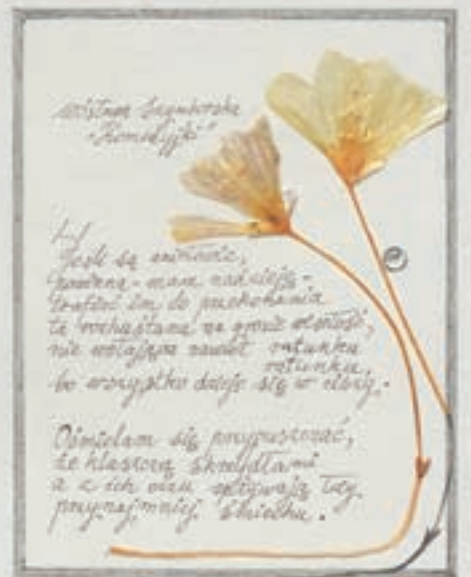 Wisława Szymborska
„Komedyjki”
[...]
Jeśli są aniołowie,
powinna - mam nadzieję -
trafić im do przekonania
ta rozhuśtana na grozie wesołość,
nie wołająca nawet ratunku
ratunku,
bo wszystko dzieje się w ciszy.
Ośmielam się przypuszczać,
że klaszczą skrzydłami
a z ich oczu spływają łzy
przynajmniej śmiechu.